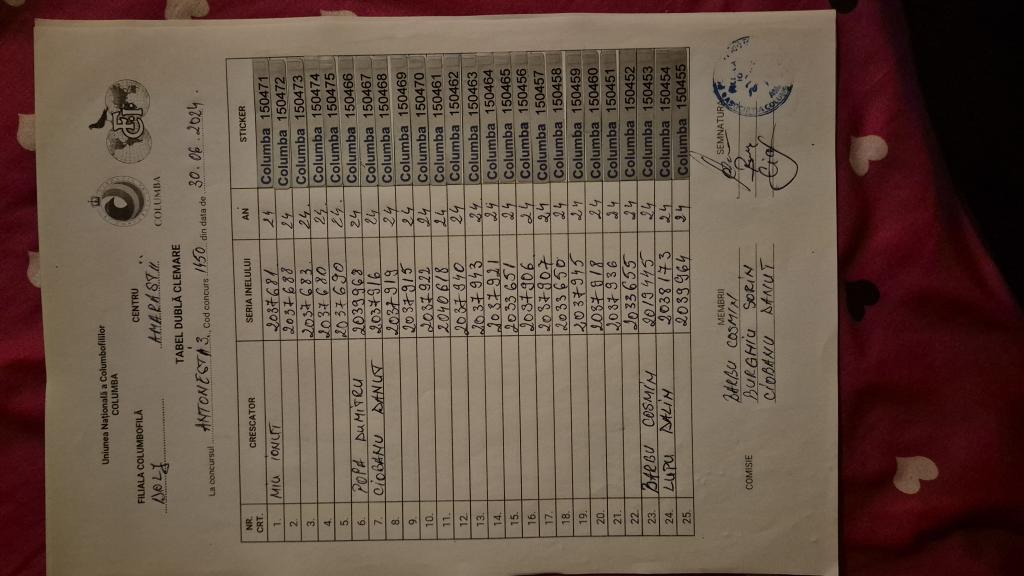 Uniunea Națională a Columbofililor
COLUMBA
COLUMBA
FILIALA COLUMBOFILĂ CENTRU
DOLJ AMARASTII.
TABEL DUBLĂ CLEMARE
La concursul ANTONESTA 3, Cod concurs 1150 din data de 30.06.2024.
NR. CRT. CRESCATOR SERIA INELULUI AN STICKER
1. MIU IONUT 2037681 24 Columba 150471
2. 2037688 24 Columba 150472
3. 2037683 24 Columba 150473
4. 2037680 24 Columba 150474
5. 2037690 24 Columba 150475
6. POPA DUMITRU 2039968 24 Columba 150466
7. CIOBANU DANUT 2037916 24 Columba 150467
8. 2037919 24 Columba 150468
9. 2037915 24 Columba 150469
10. 2037922 24 Columba 150470
11. 2040618 24 Columba 150461
12. 2037940 24 Columba 150462
13. 2037943 24 Columba 150463
14. 2037921 24 Columba 150464
15. 2033651 24 Columba 150465
16. 2037906 24 Columba 150456
17. 2037907 24 Columba 150457
18. 2033650 24 Columba 150458
19. 2037945 24 Columba 150459
20. 2037918 24 Columba 150460
21. 2037936 24 Columba 150451
22. 2033655 24 Columba 150452
23. BARBU COSMIN 2019445 24 Columba 150453
24. LUPU DALIN 2038173 24 Columba 150454
25. 2039964 24 Columba 150455
COMISIE MEMBRII SEMNATURA
BARBU COSMIN
DURGHIU SORIN
CIOBANU DANUT